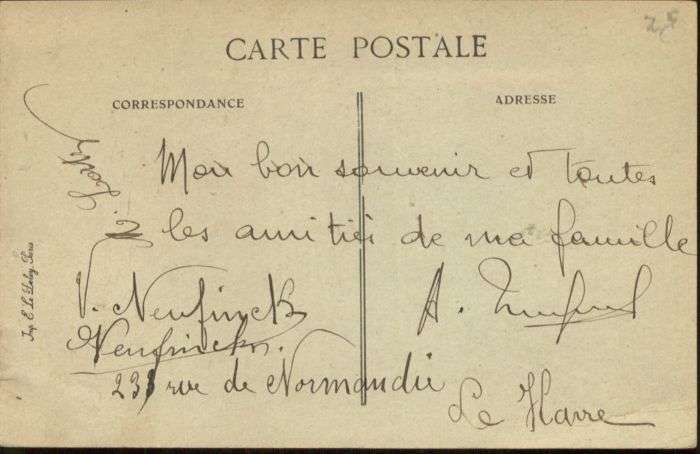 CARTE POSTALE
CORRESPONDANCE
ADRESSE
Mon bon souvenir et toutes
les amitiés de ma famille
V. Neufinck
A.
Neufinck
23 rue de Normandie
Le Havre
Imp. E. Le Deley, Paris